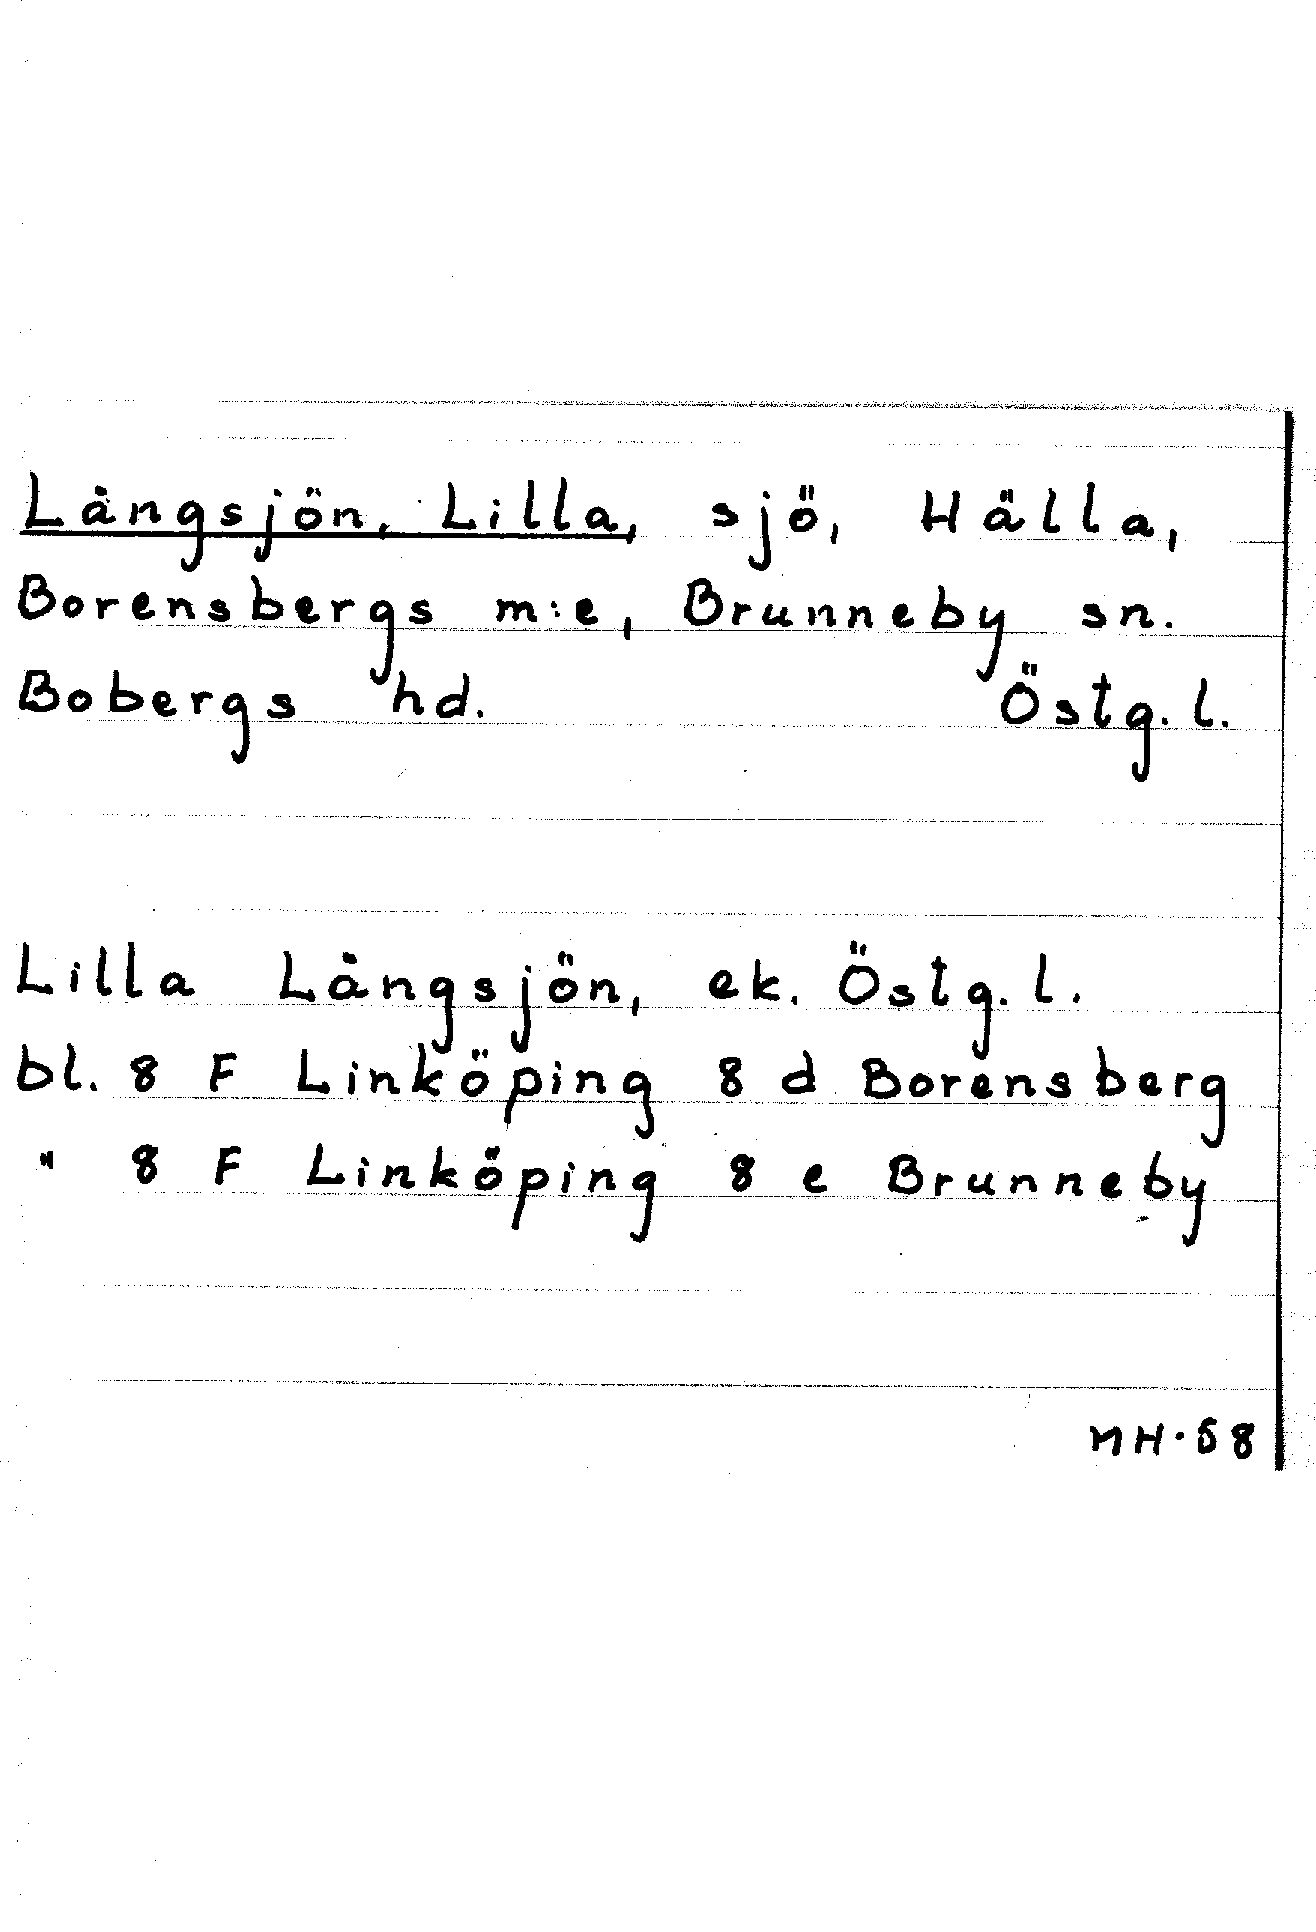 Långsjön, Lilla, sjö, Hälla,
Borensbergs m:e, Brunneby sn.
Bobergs hd. Östg. l.
Lilla Långsjön, ek. Östg. l.
bl. 8 F Linköping 8 d Borensberg
" 8 F Linköping 8 e Brunneby
MH·58